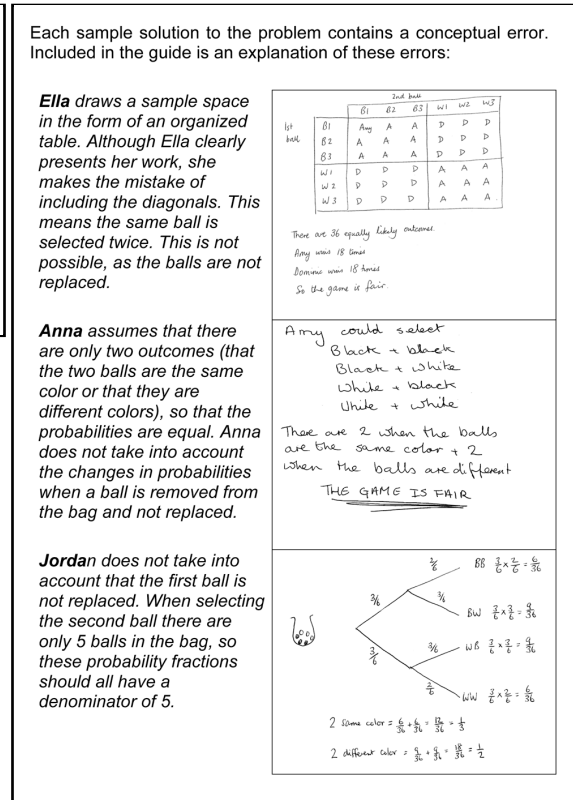 Each sample solution to the problem contains a conceptual error.
Included in the guide is an explanation of these errors:
Ella draws a sample space
in the form of an organized
table. Although Ella clearly
presents her work, she
makes the mistake of
including the diagonals. This
means the same ball is
selected twice. This is not
possible, as the balls are not
replaced.
2nd ball
B1 B2 B3 W1 W2 W3
1st B1 Amy A A D D D
ball B2 A A A D D D
B3 A A A D D D
W1 D D D A A A
W2 D D D A A A
W3 D D D A A A
There are 36 equally likely outcomes.
Amy wins 18 times
Dominic wins 18 times
So the game is fair.
Anna assumes that there
are only two outcomes (that
the two balls are the same
color or that they are
different colors), so that the
probabilities are equal. Anna
does not take into account
the changes in probabilities
when a ball is removed from
the bag and not replaced.
Amy could select
Black + black
Black + white
White + black
White + white
There are 2 when the balls
are the same color + 2
when the balls are different
THE GAME IS FAIR
Jordan does not take into
account that the first ball is
not replaced. When selecting
the second ball there are
only 5 balls in the bag, so
these probability fractions
should all have a
denominator of 5.
2/6 BB 3/6 × 2/6 = 6/36
3/6 3/6 BW 3/6 × 3/6 = 9/36
3/6 3/6 WB 3/6 × 3/6 = 9/36
2/6 WW 3/6 × 2/6 = 6/36
2 same color = 6/36 + 6/36 = 12/36 = 1/3
2 different color = 9/36 + 9/36 = 18/36 = 1/2